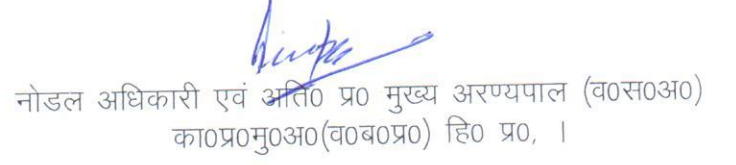 नोडल अधिकारी एवं अति0 प्र0 मुख्य अरण्यपाल (व0स0अ0)
का0प्र0मु0अ0(व0ब0प्र0) हि0 प्र0, ।